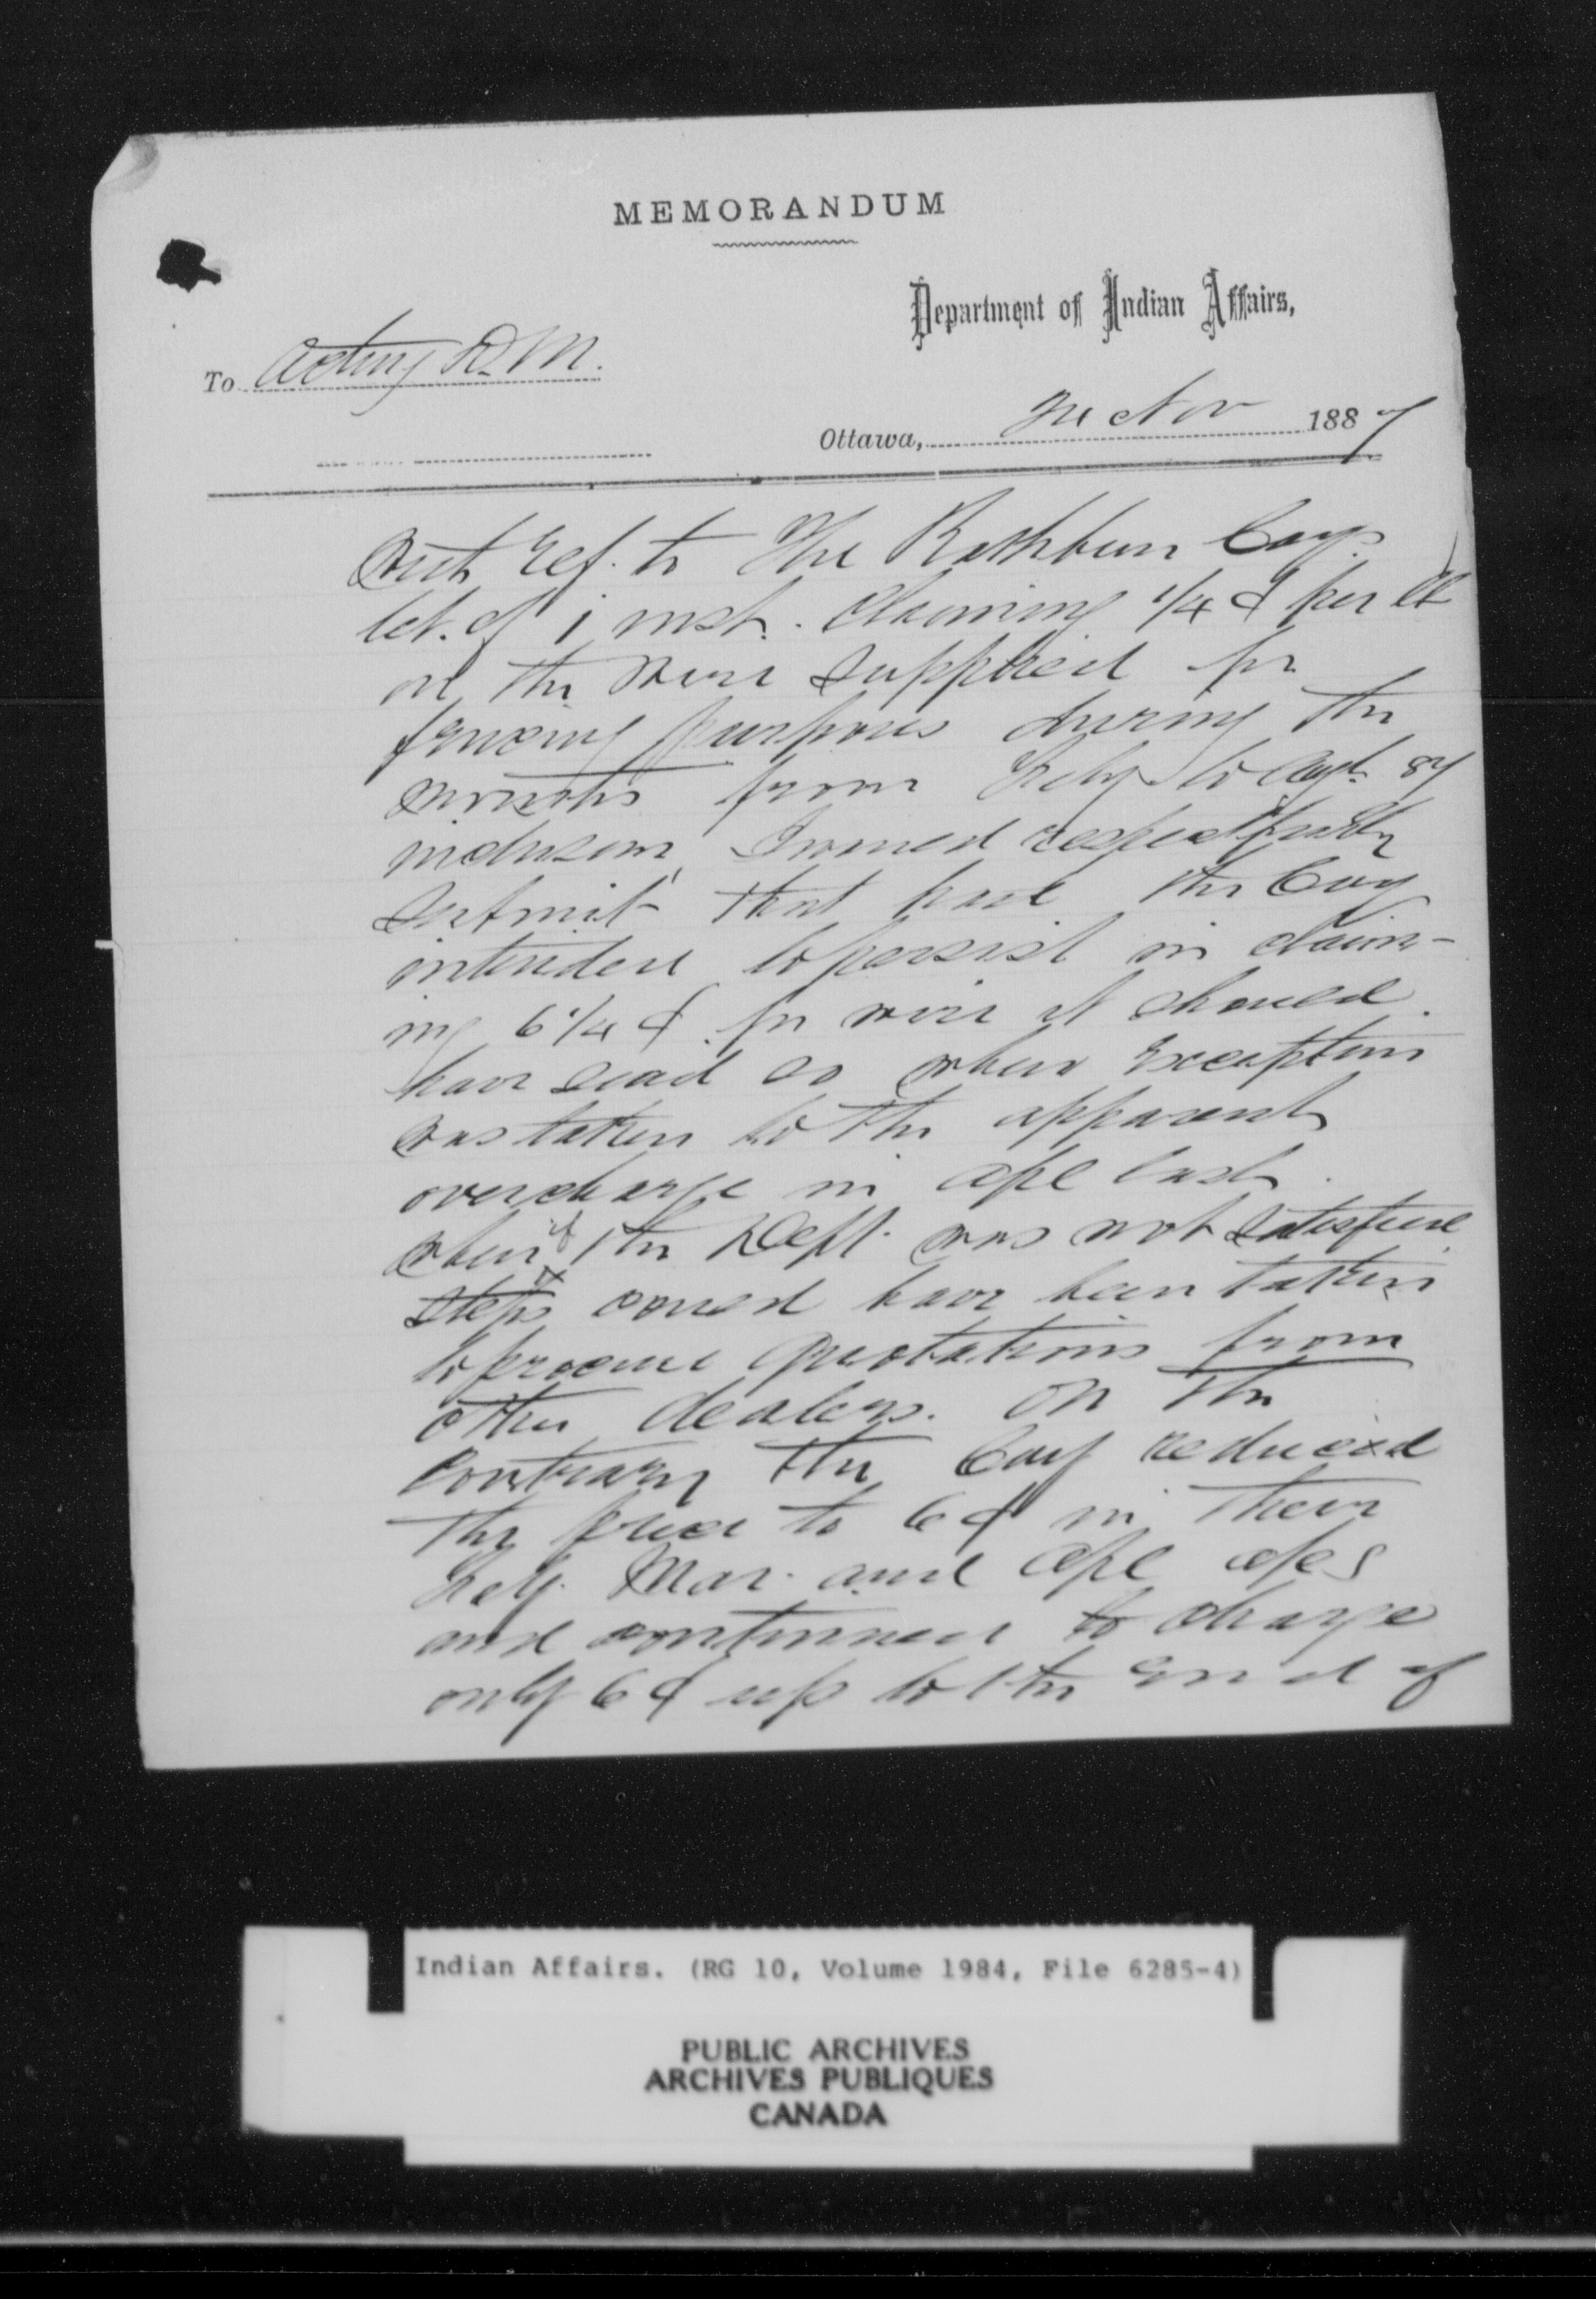 MEMORANDUM
Department of Indian Affairs,
To Acting D. M.
Ottawa, Nov 1887
With ref. to The Rathbun Coy's
let. of 1 inst. claiming 1/4 ¢ per lb
on the wire supplied for
fencing purposes during the
months from Feby to Augt. 87
inclusive I would respectfully
submit that had the Coy
intended to persist in claim-
ing 6 1/4 ¢ for wire it should
have said so when exception
was taken to the apparent
overcharge in Apl last
when if the Dept. was not satisfied
steps would have been taken
to procure quotations from
other dealers. On the
contrary the Coy reduced
the price to 6 ¢ in their
Feby. Mar. and Apl a/cs
and continued to charge
only 6 ¢ up to the end of
Indian Affairs. (RG 10, Volume 1984, File 6285-4)
PUBLIC ARCHIVES
ARCHIVES PUBLIQUES
CANADA